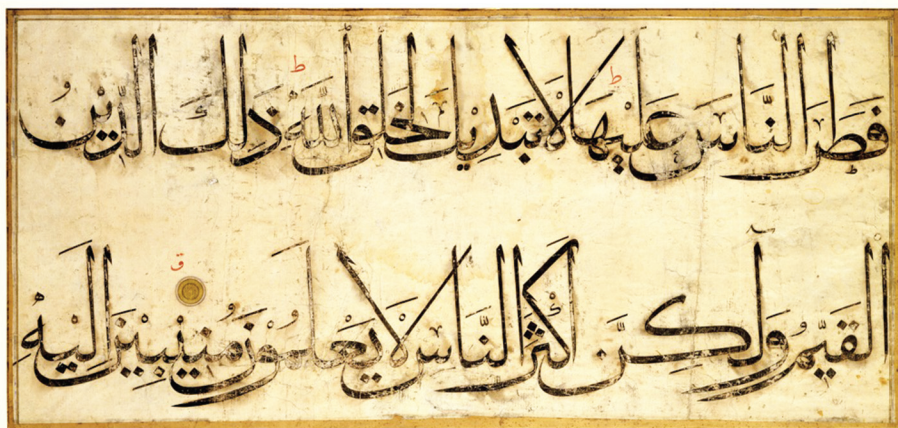 فَطَرَ النَّاسَ عَلَيْهَا ط لَا تَبْدِيلَ لِخَلْقِ اللَّهِ ط ذَلِكَ الدِّينُ
الْقَيِّمُ وَلَكِنَّ أَكْثَرَ النَّاسِ لَا يَعْلَمُونَ ق مُنِيبِينَ إِلَيْهِ